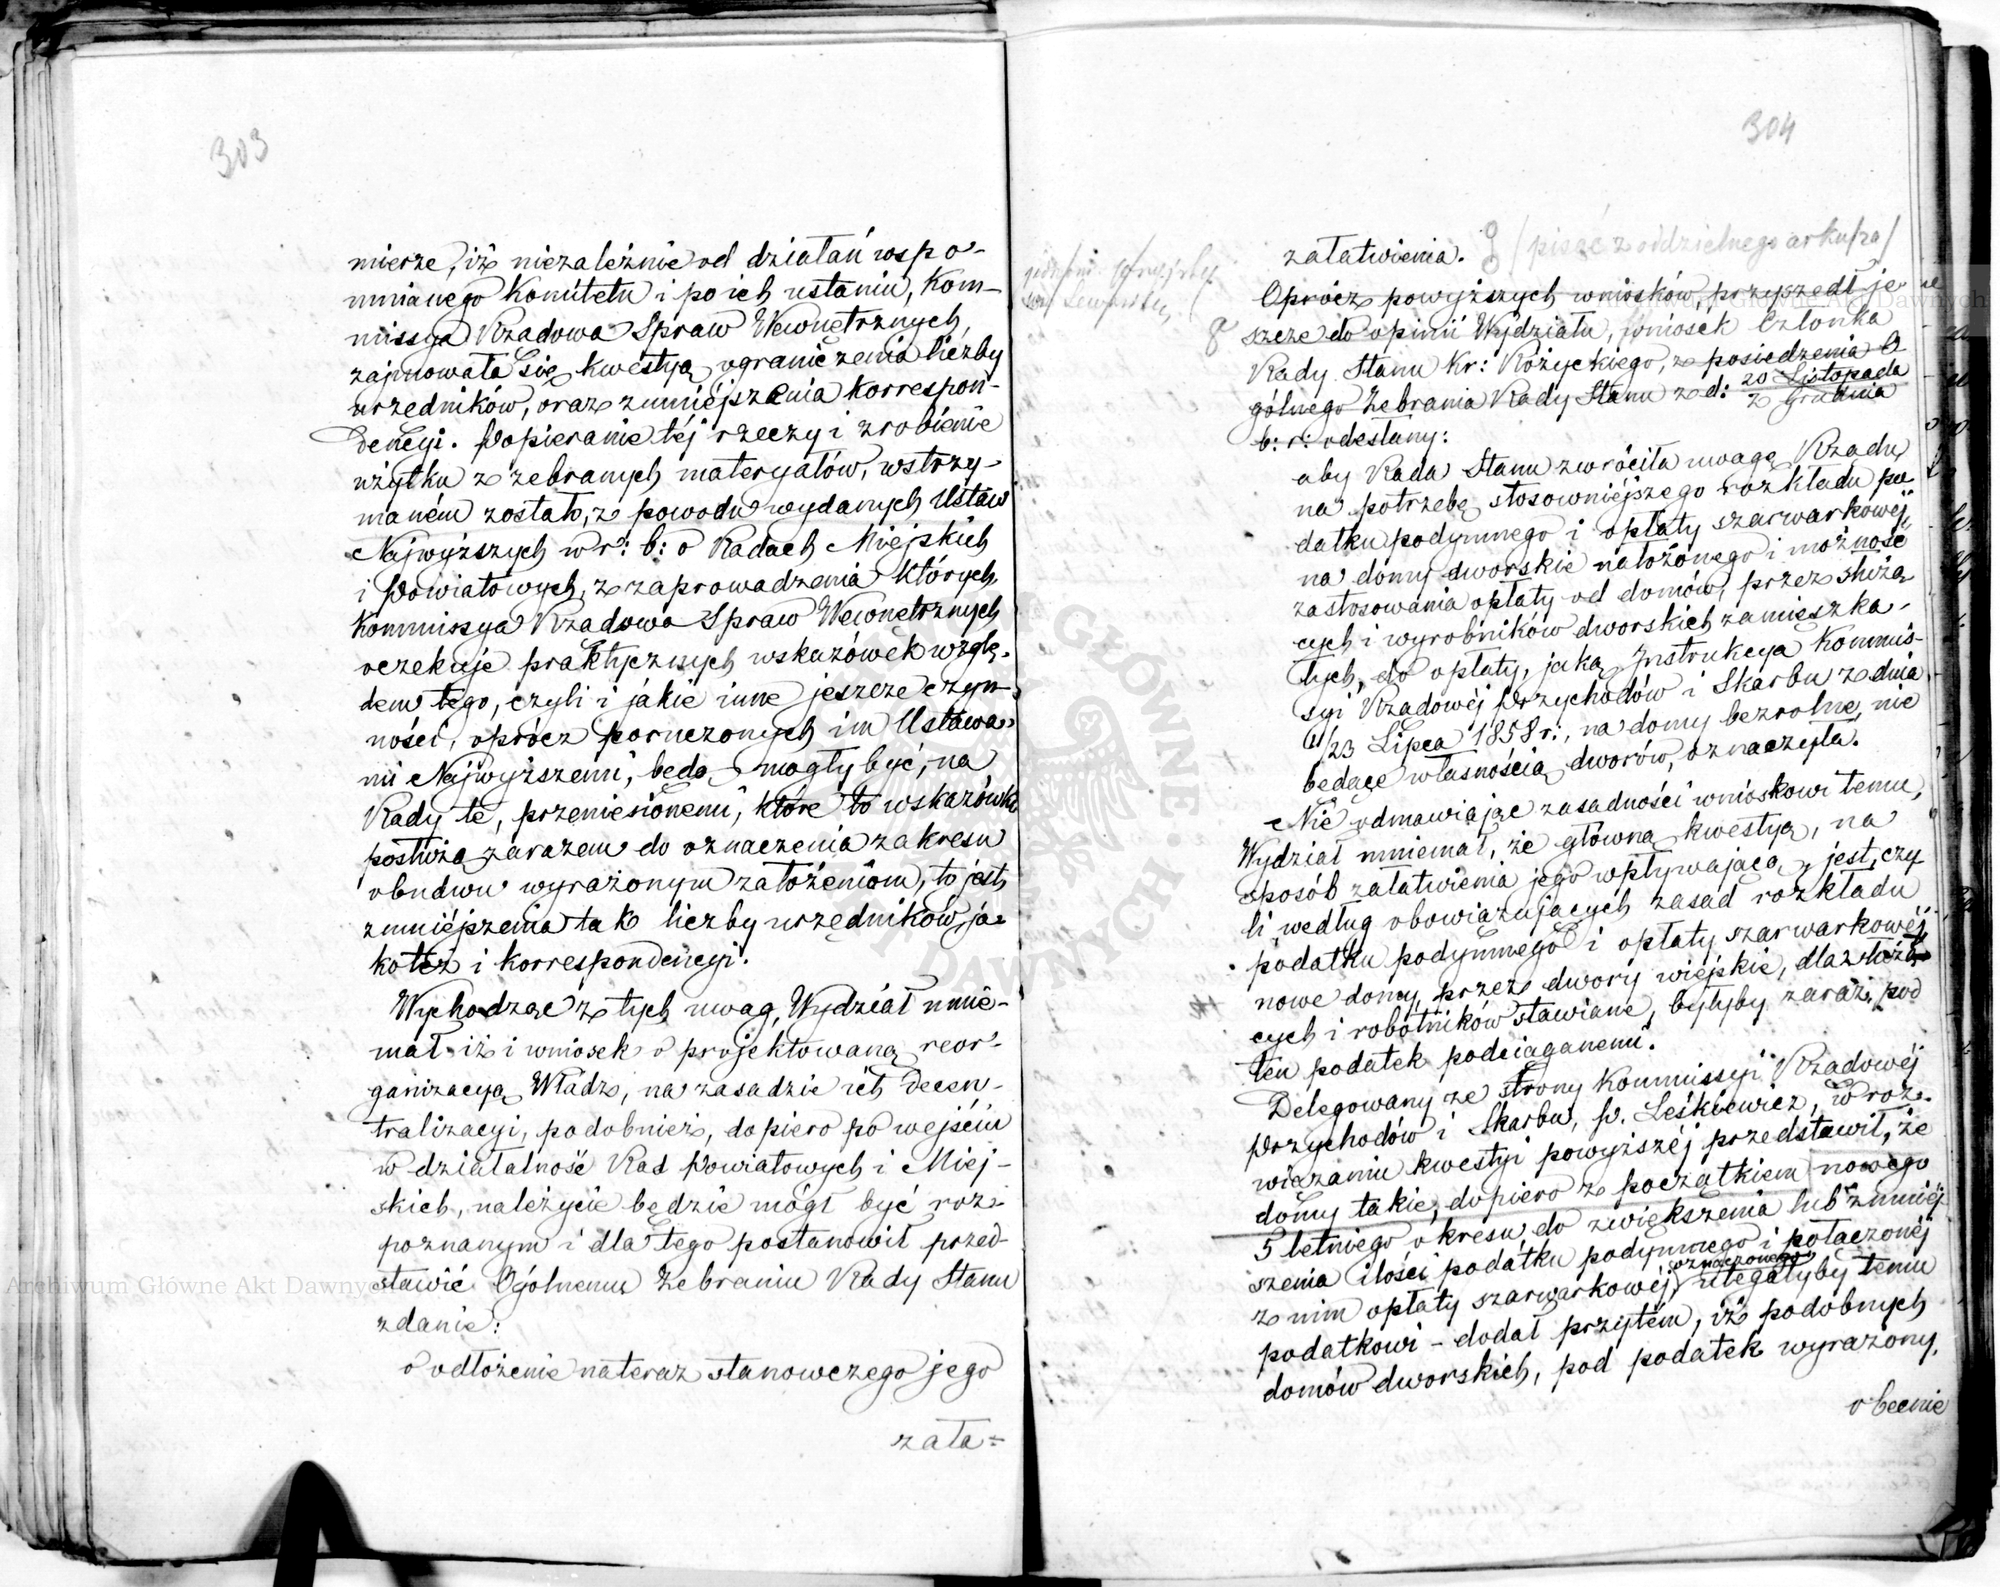 303
mierze, iż niezależnie od działań wspo-
mnianego Komitetu i po ich ustaniu, Kom-
missya Rządowa Spraw Wewnętrznych,
zajmowała się kwestyą ograniczenia liczby
urzędników, oraz zmniéjszenia korrespon-
dencyi. Popieranie téj rzeczy i zrobienie
użytku z zebranych materyałów, wstrzy-
maném zostało, z powodu wydanych Ustaw
Najwyższych w r: b: o Radach Miejskich
i Powiatowych, z zaprowadzenia których,
Kommissya Rządowa Spraw Wewnętrznych
oczekuje praktycznych wskazówek wzglę-
dem tego, czyli i jakie inne jeszcze czyn-
ności, oprócz poruczonych im Ustawa-
mi Najwyższemi, będą mogły być, na
Rady te, przeniesionemi, które to wskazówki
posłużą zarazem do oznaczenia zakresu
obudwu wyrażonym założeniom, to jest,
zmniéjszenia tak liczby urzędników ja-
koteż i korrespondencyi.
Wychodząc z tych uwag, Wydział mnie-
mał iż i wniosek o projektowaną reor-
ganizacyą Władz, na zasadzie ich decen-
tralizacyi, podobnież, dopiero po wejściu
w działalność Rad Powiatowych i Miej-
skich, należycie będzie mógł być roz-
poznanym i dla tego postanowił przed-
stawić Ogólnemu Zebraniu Rady Stanu
zdanie:
o odłożenie na teraz stanowczego jego
zała-
304
załatwienia. /pisać z oddzielnego arkusza/
Oprócz powyższych wniosków, przyszedł je-
szcze do opinii Wydziału, wniosek Członka
Rady Stanu Kr: Różyckiego, z posiedzenia O-
gólnego Zebrania Rady Stanu z d: 20 Listopada
2 Grudnia
b: r: odesłany:
aby Rada Stanu zwróciła uwagę Rządu
na potrzebę stosowniejszego rozkładu po-
datku podymnego i opłaty szarwarkowéj
na domy dworskie nałożonego i możność
zastosowania opłaty od domów, przez służą-
cych i wyrobników dworskich zamieszka-
łych, do opłaty, jaką Instrukcya Kommis-
syi Rządowéj Przychodów i Skarbu z dnia
11/23 Lipca 1858 r:, na domy bezrolne, nie
będące własnością dworów, oznaczyła.
Nie odmawiając zasadności wnioskowi temu,
Wydział mniemał, że główną kwestyą, na
sposób załatwienia jego wpływającą, jest, czy-
li według obowiązujących zasad rozkładu
podatku podymnego i opłaty szarwarkowéj
nowe domy, przez dwory wiejskie, dla służą-
cych i robotników stawiane, byłyby zaraz pod
ten podatek podciąganemi.
Delegowany ze strony Kommissyi Rządowéj
Przychodów i Skarbu, P. Leśkiewicz, w roz-
wiązaniu kwestyi powyższéj przedstawił, że
domy takie, dopiero z początkiem nowego
5 letniego okresu do zwiększenia lub zmniéj-
szenia ilości podatku podymnego i połączonéj
z nim opłaty szarwarkowéj, oznaczonego, ulegałyby temu
podatkowi - dodał przytém, iż podobnych
domów dworskich, pod podatek wyrażony,
obecnie
Archiwum Główne Akt Dawnych